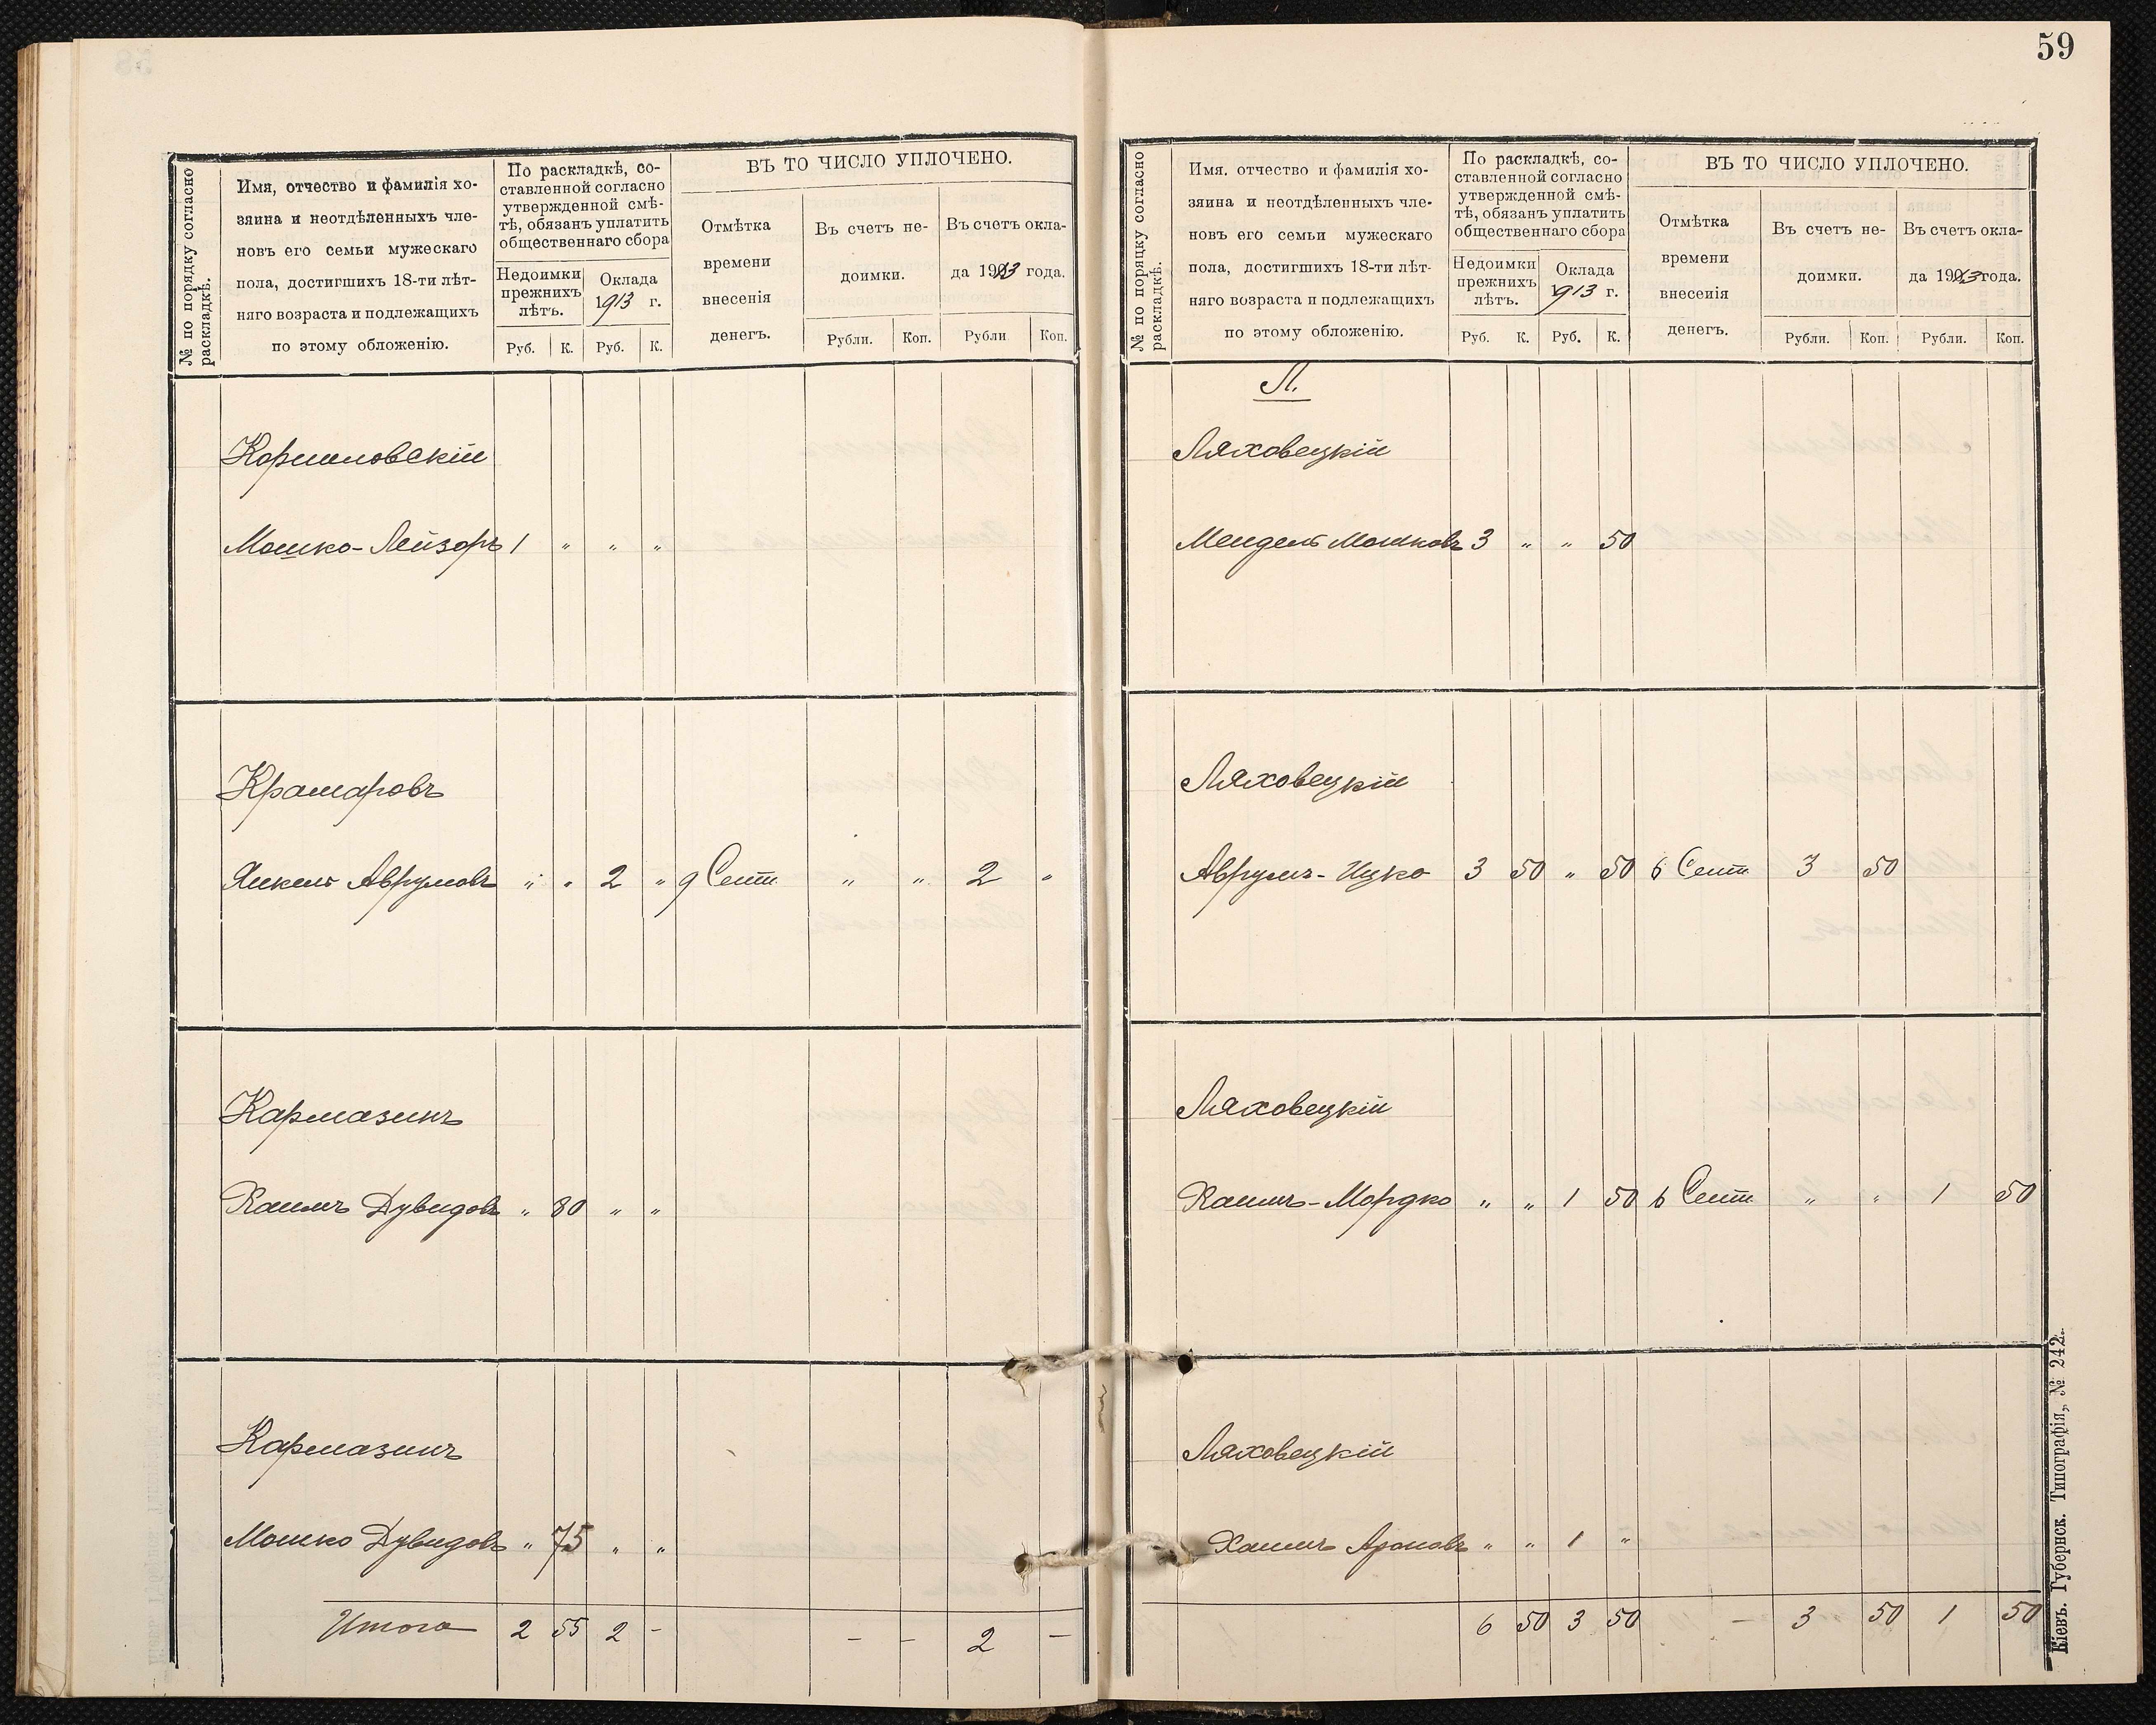 59
№ по порядку согласно раскладкѣ.
Имя, отчество и фамилія хо-
зяина и неотдѣленныхъ чле-
новъ его семьи мужескаго
пола, достигшихъ 18-ти лѣт-
няго возраста и подлежащихъ
по этому обложенію.
По раскладкѣ, со-
ставленной согласно
утвержденной смѣ-
тѣ, обязанъ уплатить
общественнаго сбора
Недоимки
прежнихъ
лѣтъ.
Оклада
1913 г.
Руб. К. Руб. К.
ВЪ ТО ЧИСЛО УПЛОЧЕНО.
Отмѣтка
времени
внесенія
денегъ.
Въ счетъ не-
доимки.
Въ счетъ окла-
да 1913 года.
Рубли. Коп. Рубли Коп.
Мошко-Лейзоръ 1 " " "
Крамаровъ
Янкель Аврумовъ " " 2 " 9 Сент. " " 2 "
Кармазинъ
Хаимъ Дувидовъ " 80 " "
Кармазинъ
Мошко Дувидовъ " 75 " "
Итого 2 55 2 - - - 2 -
№ по порядку согласно раскладкѣ.
Имя. отчество и фамилія хо-
зяина и неотдѣленныхъ чле-
новъ его семьи мужескаго
пола, достигшихъ 18-ти лѣт-
няго возраста и подлежащихъ
по этому обложенію.
По раскладкѣ, со-
ставленной согласно
утвержденной смѣ-
тѣ, обязанъ уплатить
общественнаго сбора
Недоимки
прежнихъ
лѣтъ.
Оклада
1913 г.
Руб. К. Руб. К.
ВЪ ТО ЧИСЛО УПЛОЧЕНО.
Отмѣтка
времени
внесенія
денегъ.
Въ счетъ не-
доимки.
Въ счетъ окла-
да 1913 года.
Рубли. Коп. Рубли. Коп.
Л.
Ляховецкій
Мендель Мошковъ 3 " " 50
Ляховецкій
Аврумъ-Ицко 3 50 " 50 6 Сент. 3 50
Ляховецкій
Хаимъ-Мордко " " 1 50 6 Сент. " " 1 50
Ляховецкій
Хаимъ Ароновъ " " 1 "
6 50 3 50 - 3 50 1 50
Кіевъ. Губернск. Типографія, № 242.